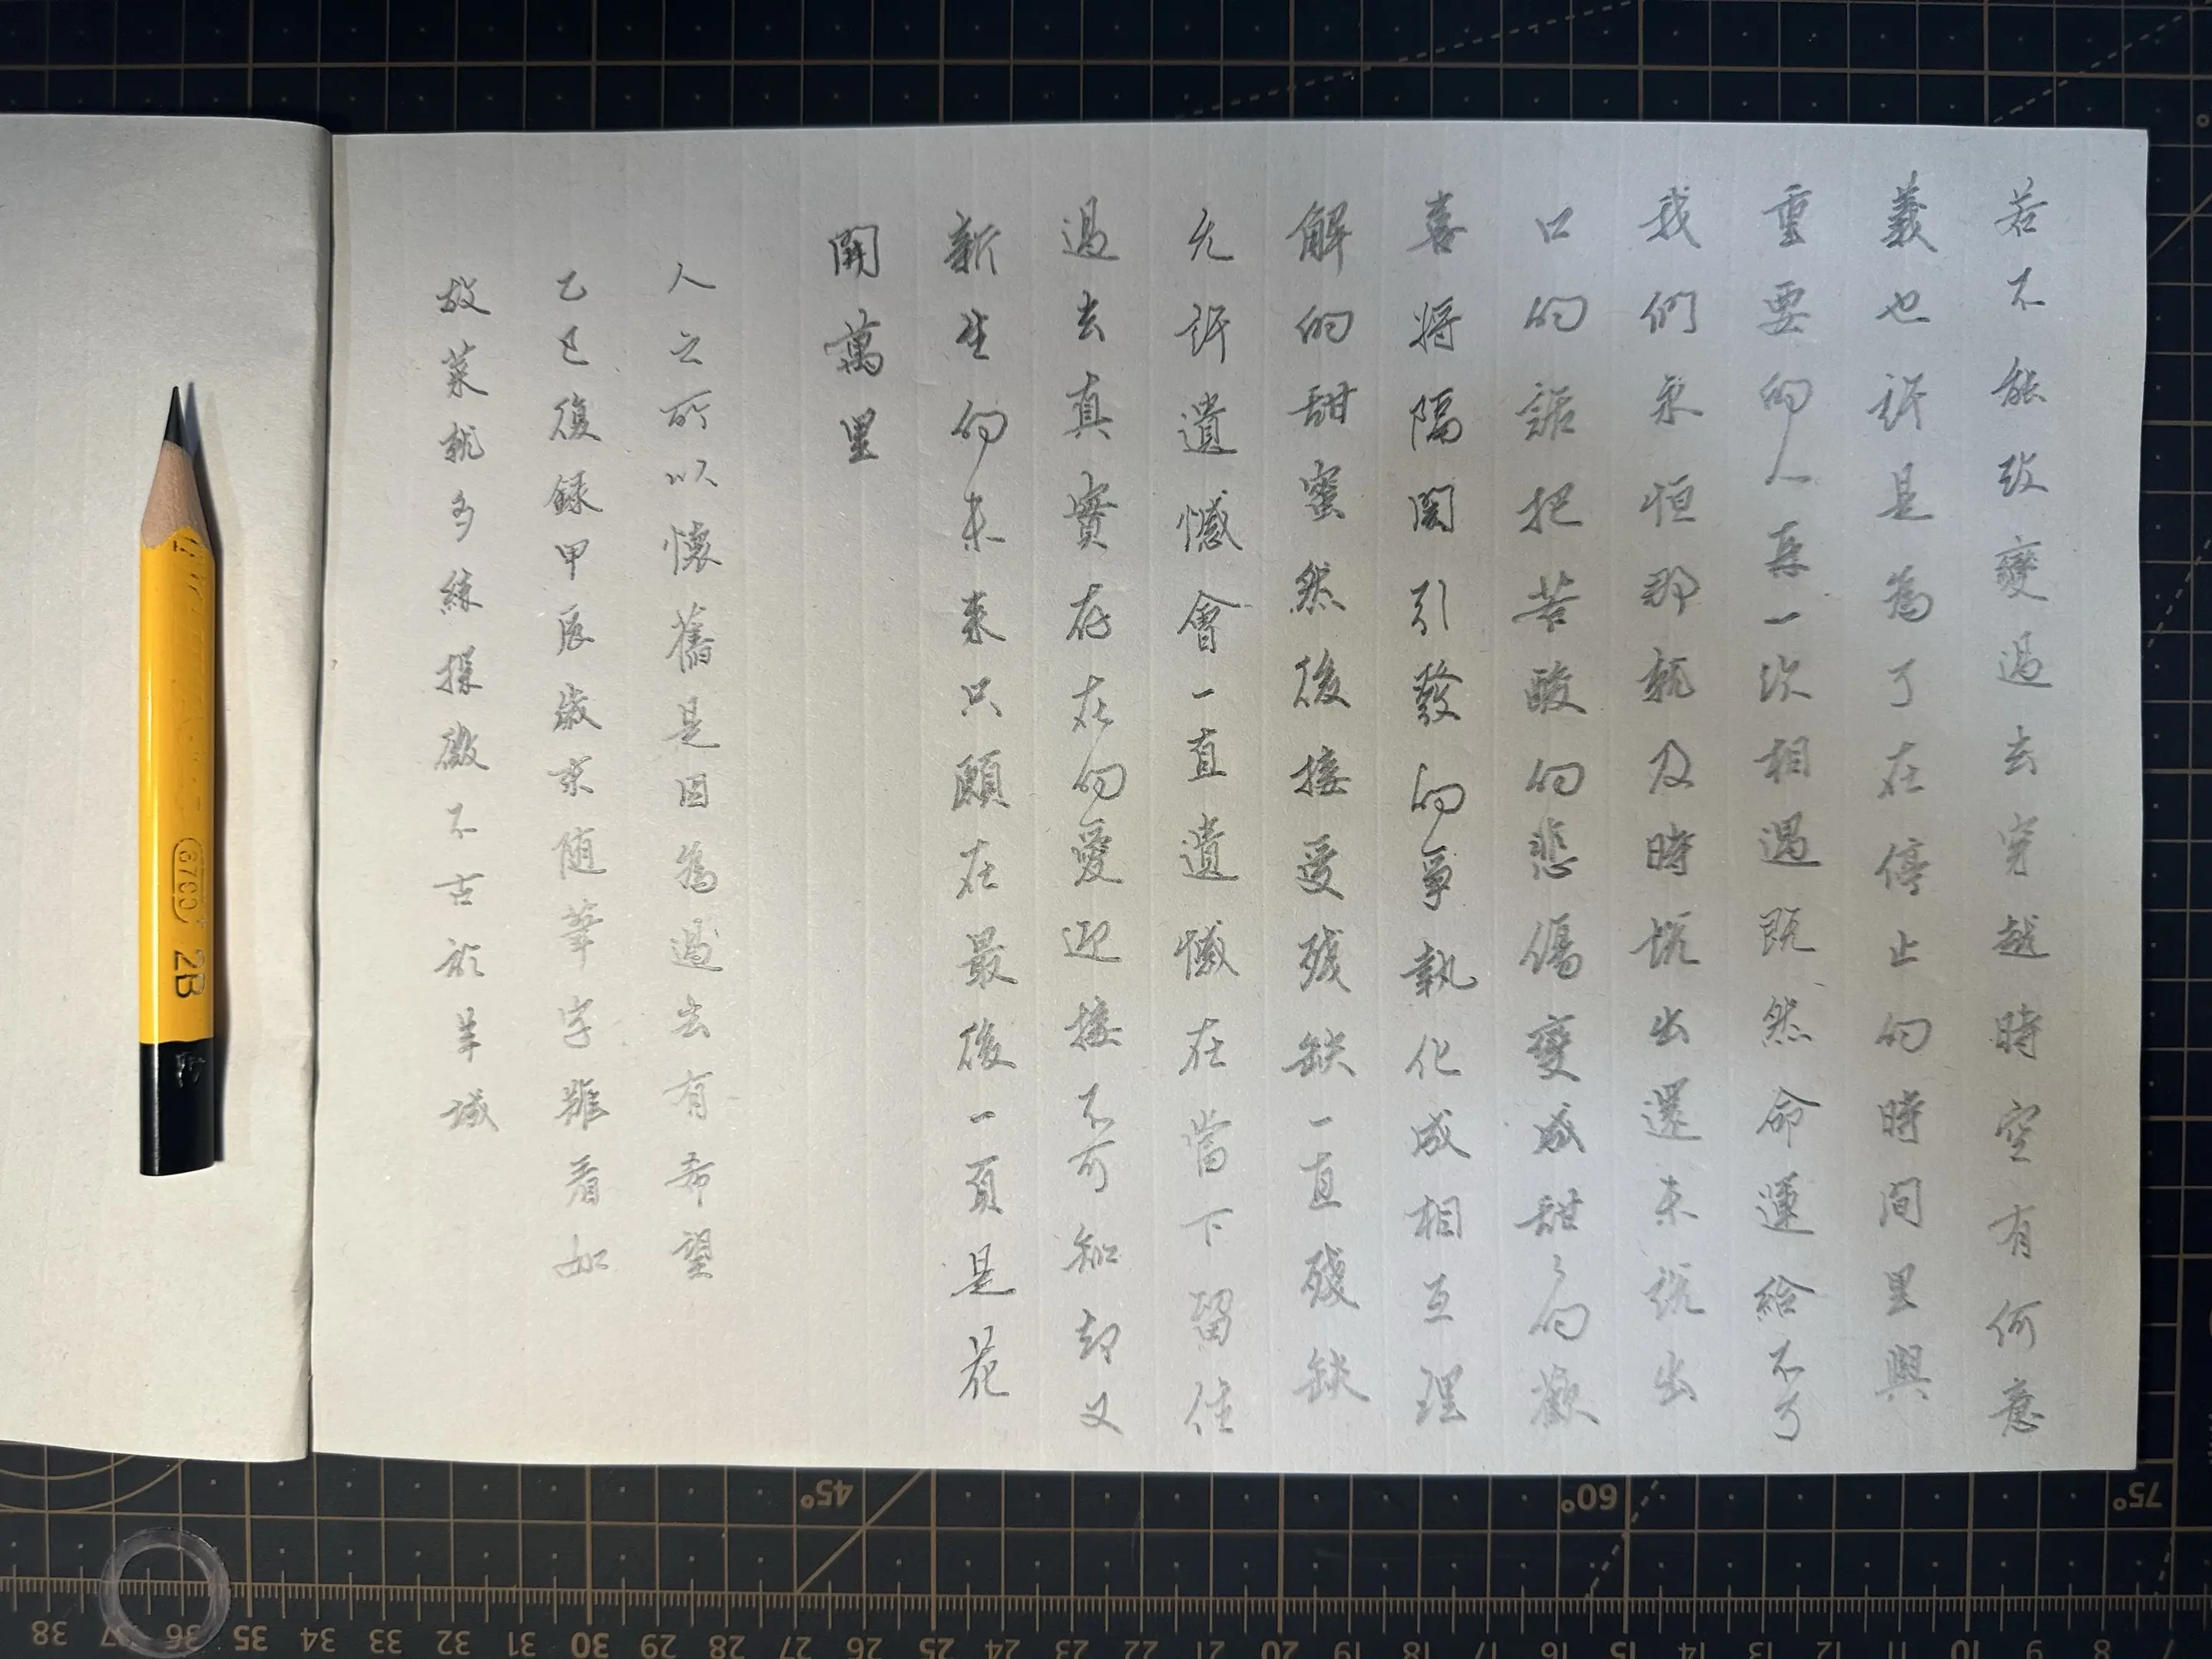 若不能改變過去穿越時空有何意
義也許是為了在停止的時间里與
重要的人再一次相遇既然命運給不了
我們永恒那就及時説出還未説出
口的話把苦酸的悲傷變成甜々的歡
喜将隔閡引發的爭執化成相互理
解的甜蜜然後接受残缺一直残缺
允許遺憾會一直遺憾在當下留住
過去真實存在的愛迎接不可知却又
新生的未来只願在最後一頁是花
開萬里
人之所以懷舊是因為過去有希望
乙巳復録甲辰歲末随筆字雖看如
故菜就多練探微不古於羊城
6700 2B
45° 60° 75°
38 37 36 35 34 33 32 31 30 29 28 27 26 25 24 23 22 21 20 19 18 17 16 15 14 13 12 11 10 9 8 7